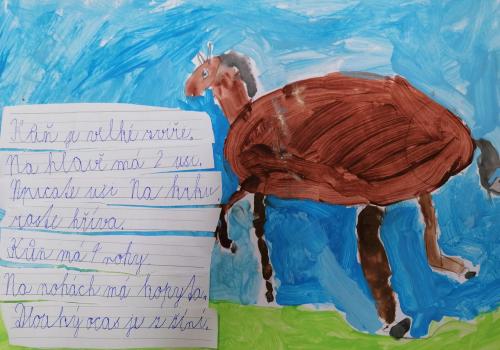 Kůň je velké zvíře.
Na hlavě má 2 uši.
uši Na krku
roste hříva.
Kůň má 4 nohy
Na nohách má kopyta.
Dlouhý ocas je z žíní.